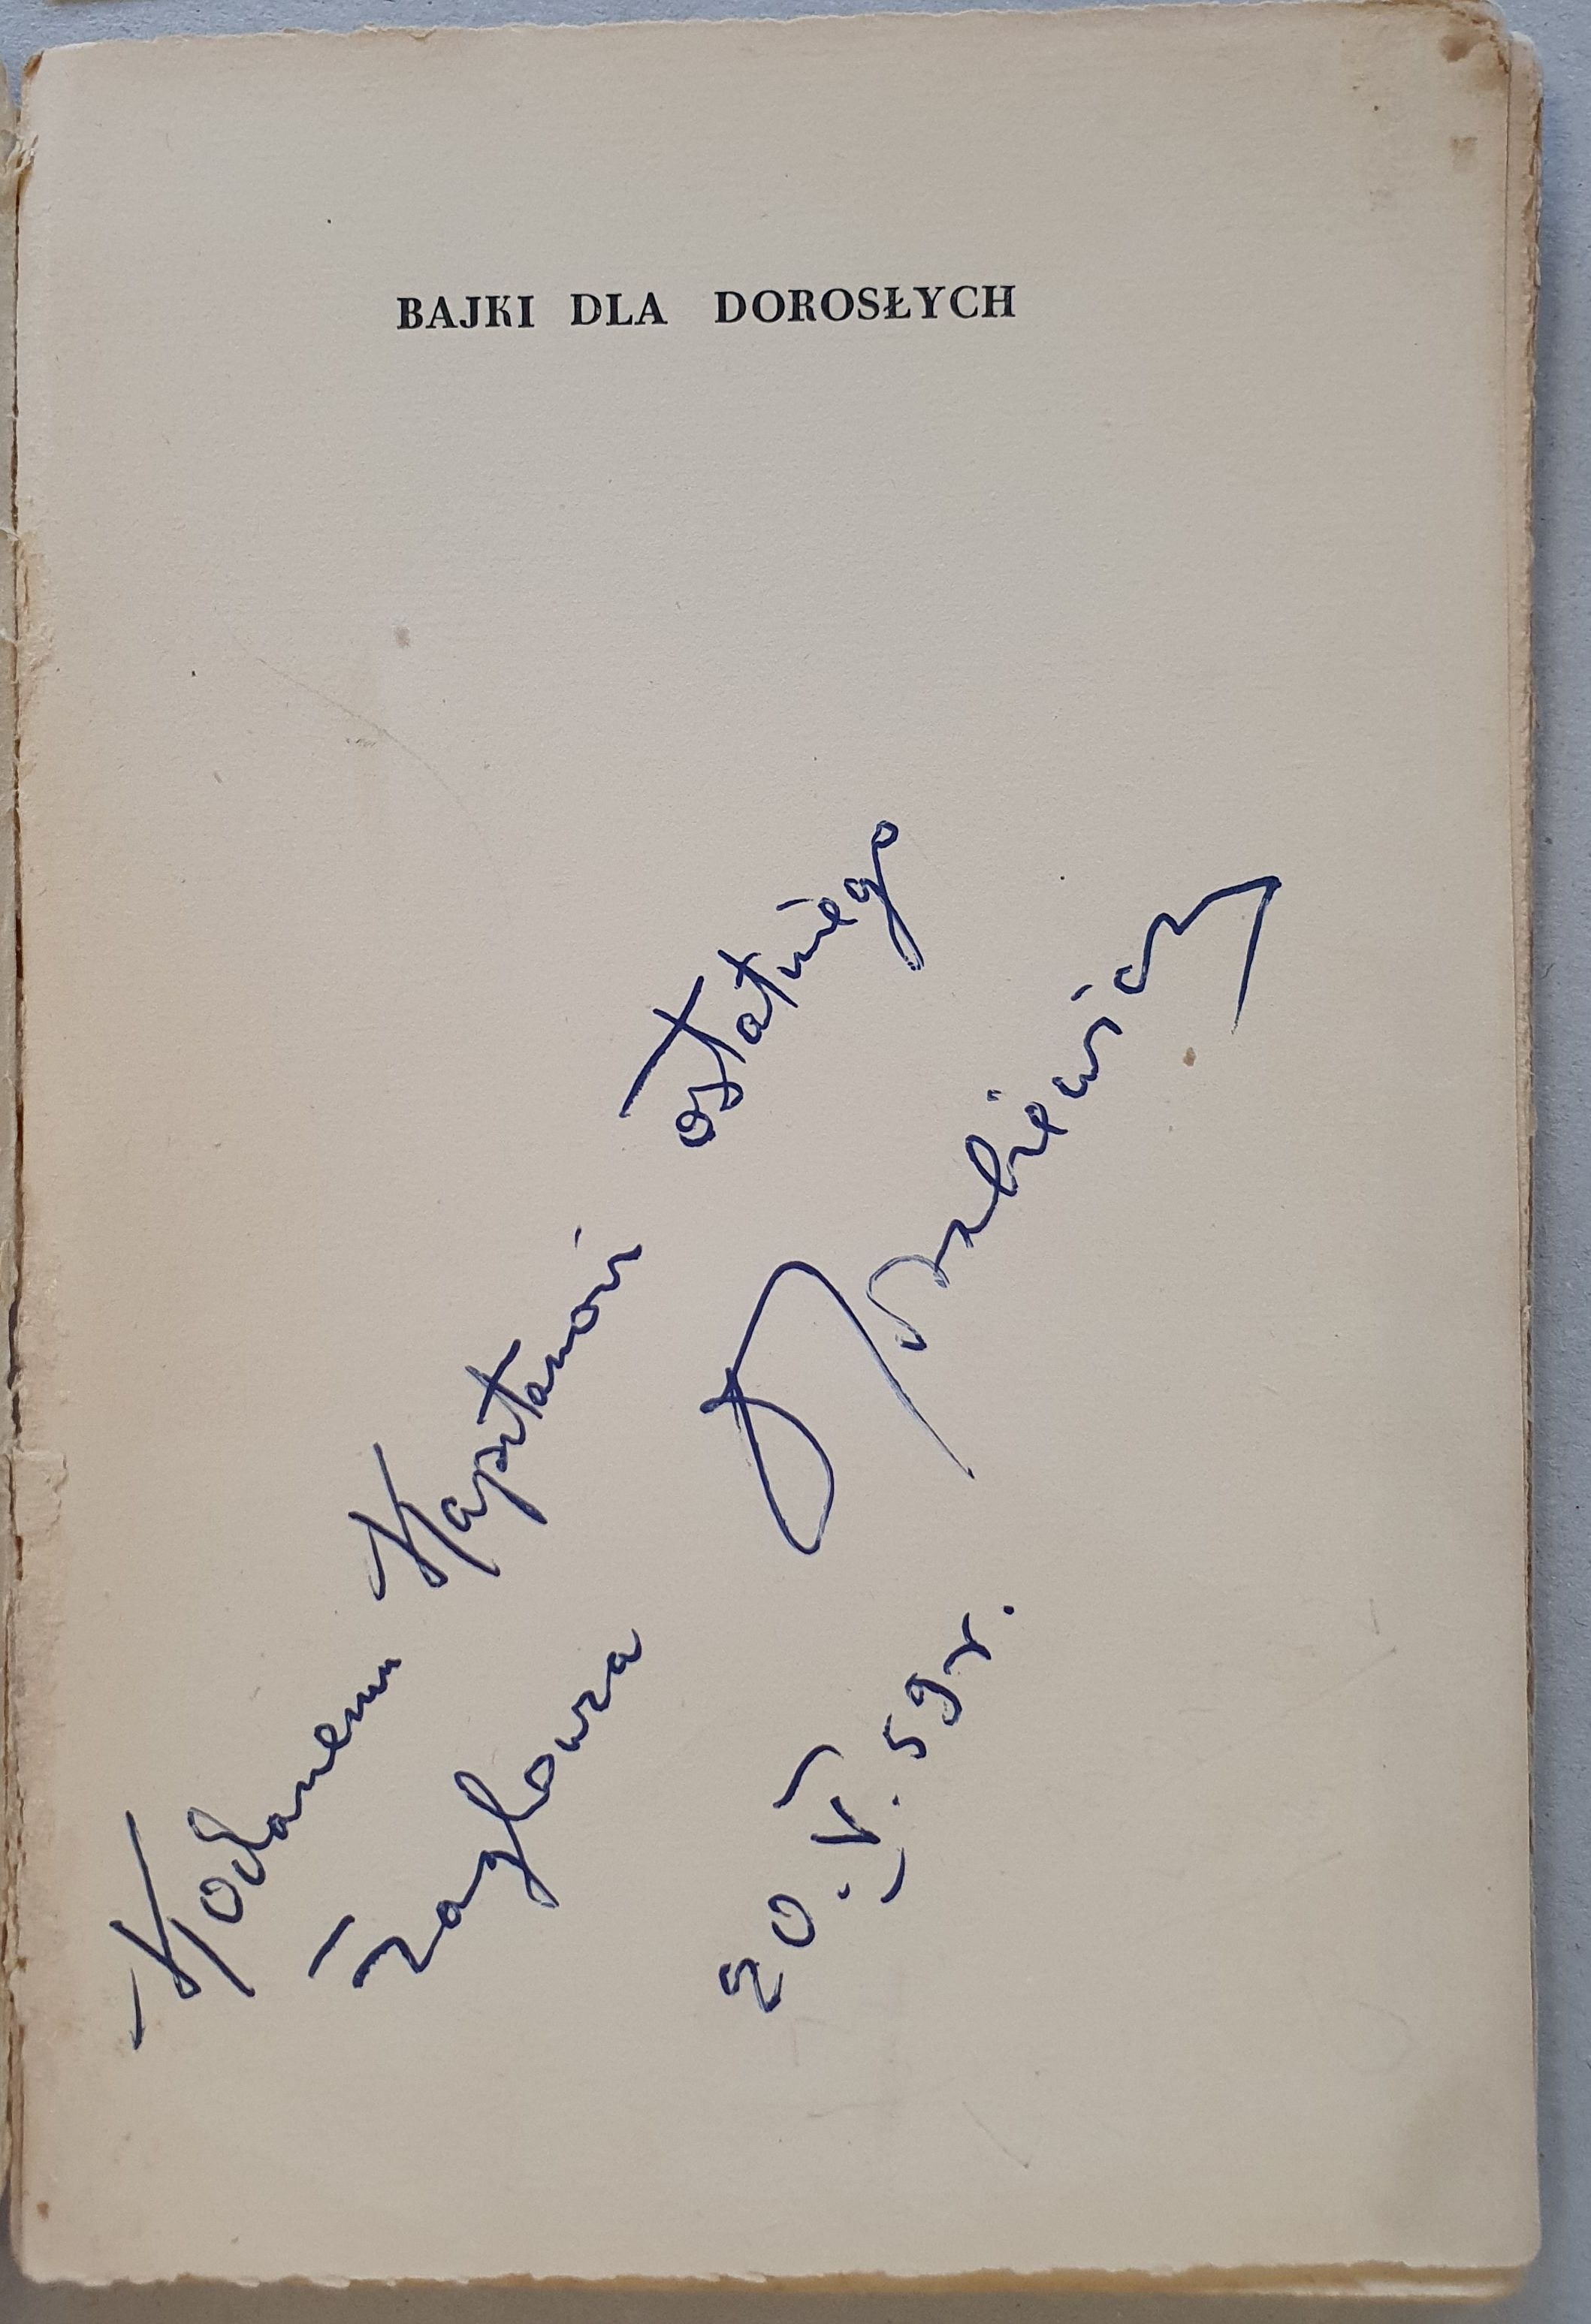 BAJKI DLA DOROSŁYCH
Kochanemu Kapitanowi ostatniego
żaglowca
20.V.59 r.